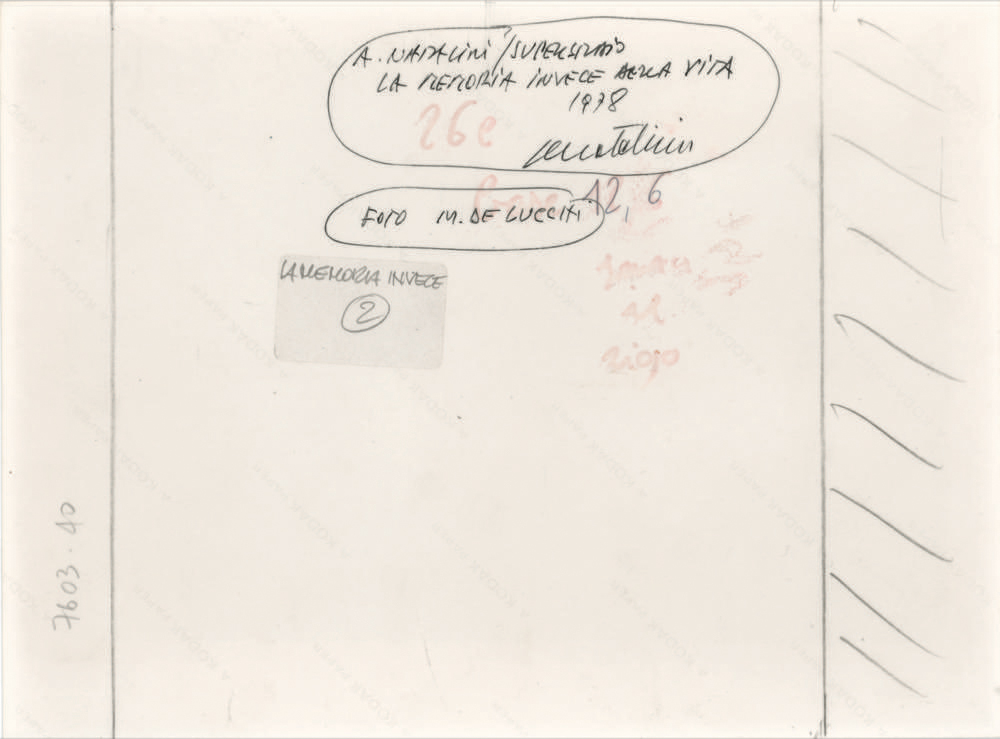 A. NATALINI / SUPERSTUDIO
LA MEMORIA INVECE DELLA VITA
1978
26e
12,6
FOTO M. DE LUCCHI
LA MEMORIA INVECE
2
7603.40
A KODAK PAPER